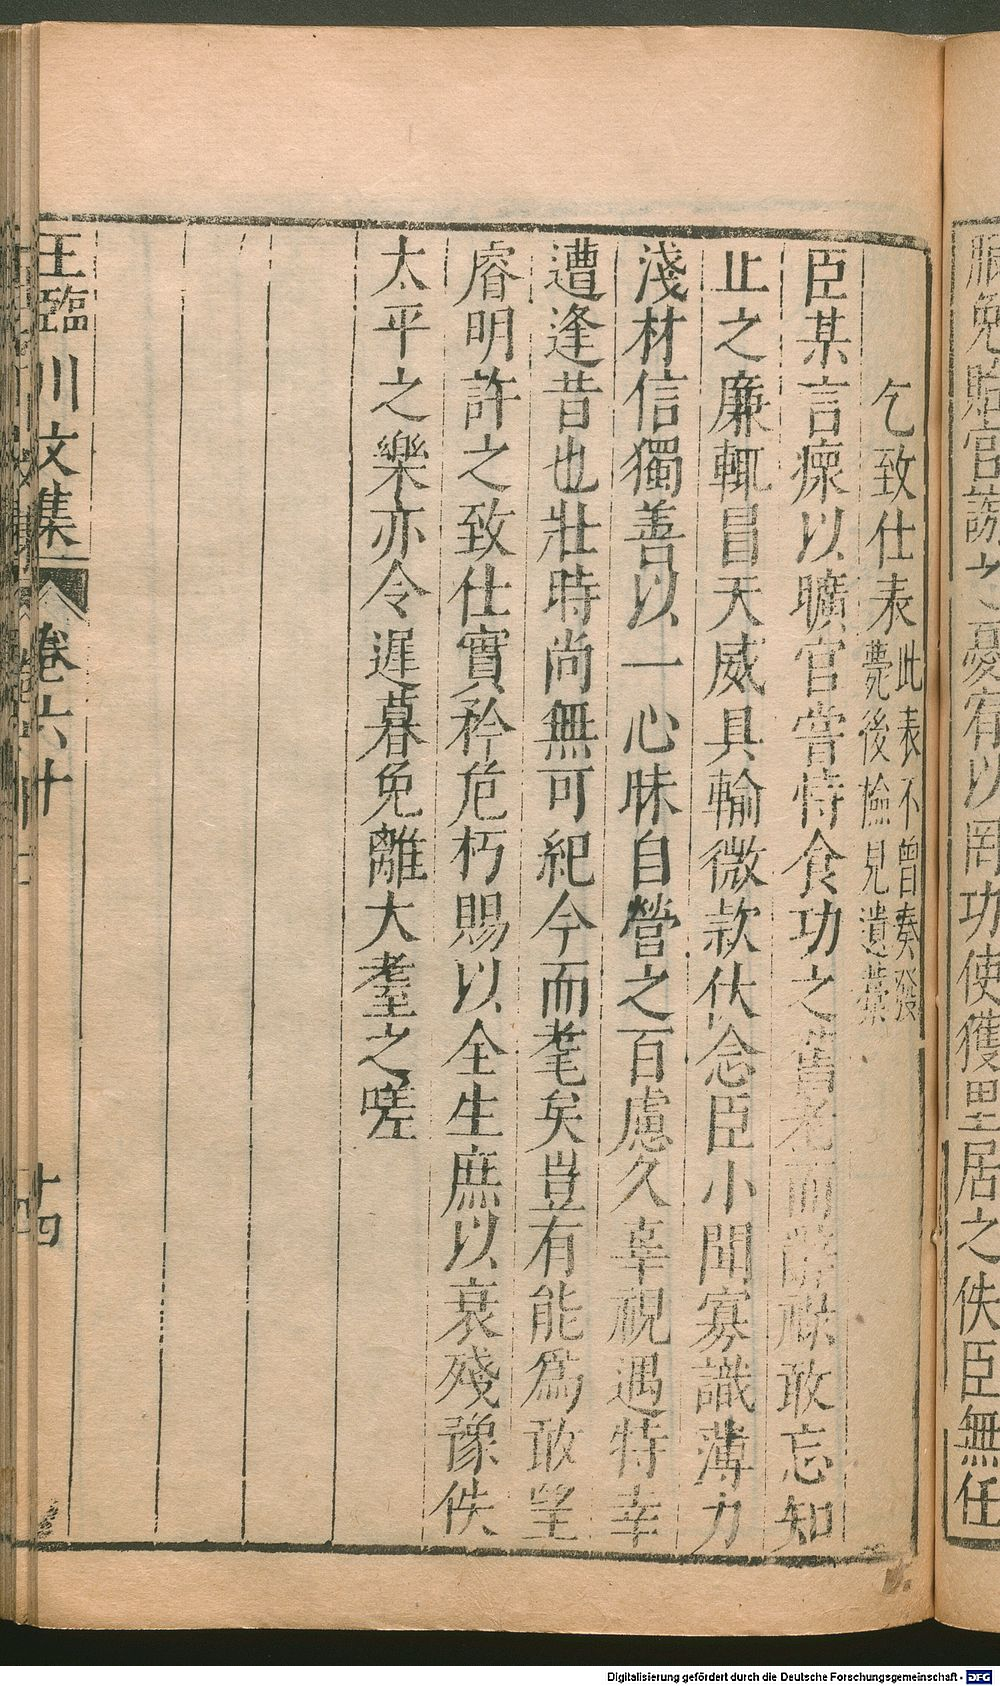 脤免貽官謗之憂宥以罔功使獲里居之佚臣無任
乞致仕表此表不曾奏發
薨後檢見遺藁
臣某言瘝以曠官嘗恃食功之舊老而辭祿敢忘知
止之廉輒冒天威具輸微款伏念臣小聞寡識薄力
淺材信獨善以一心昧自營之百慮久辜視遇特幸
遭逢昔也壯時尚無可紀今而耄矣豈有能爲敢望
睿明許之致仕實矜危朽賜以全生庶以衰殘豫佚
太平之樂亦令遲暮免離大耋之嗟
王臨川文集
卷六十
十四
Digitalisierung gefördert durch die Deutsche Forschungsgemeinschaft - DFG